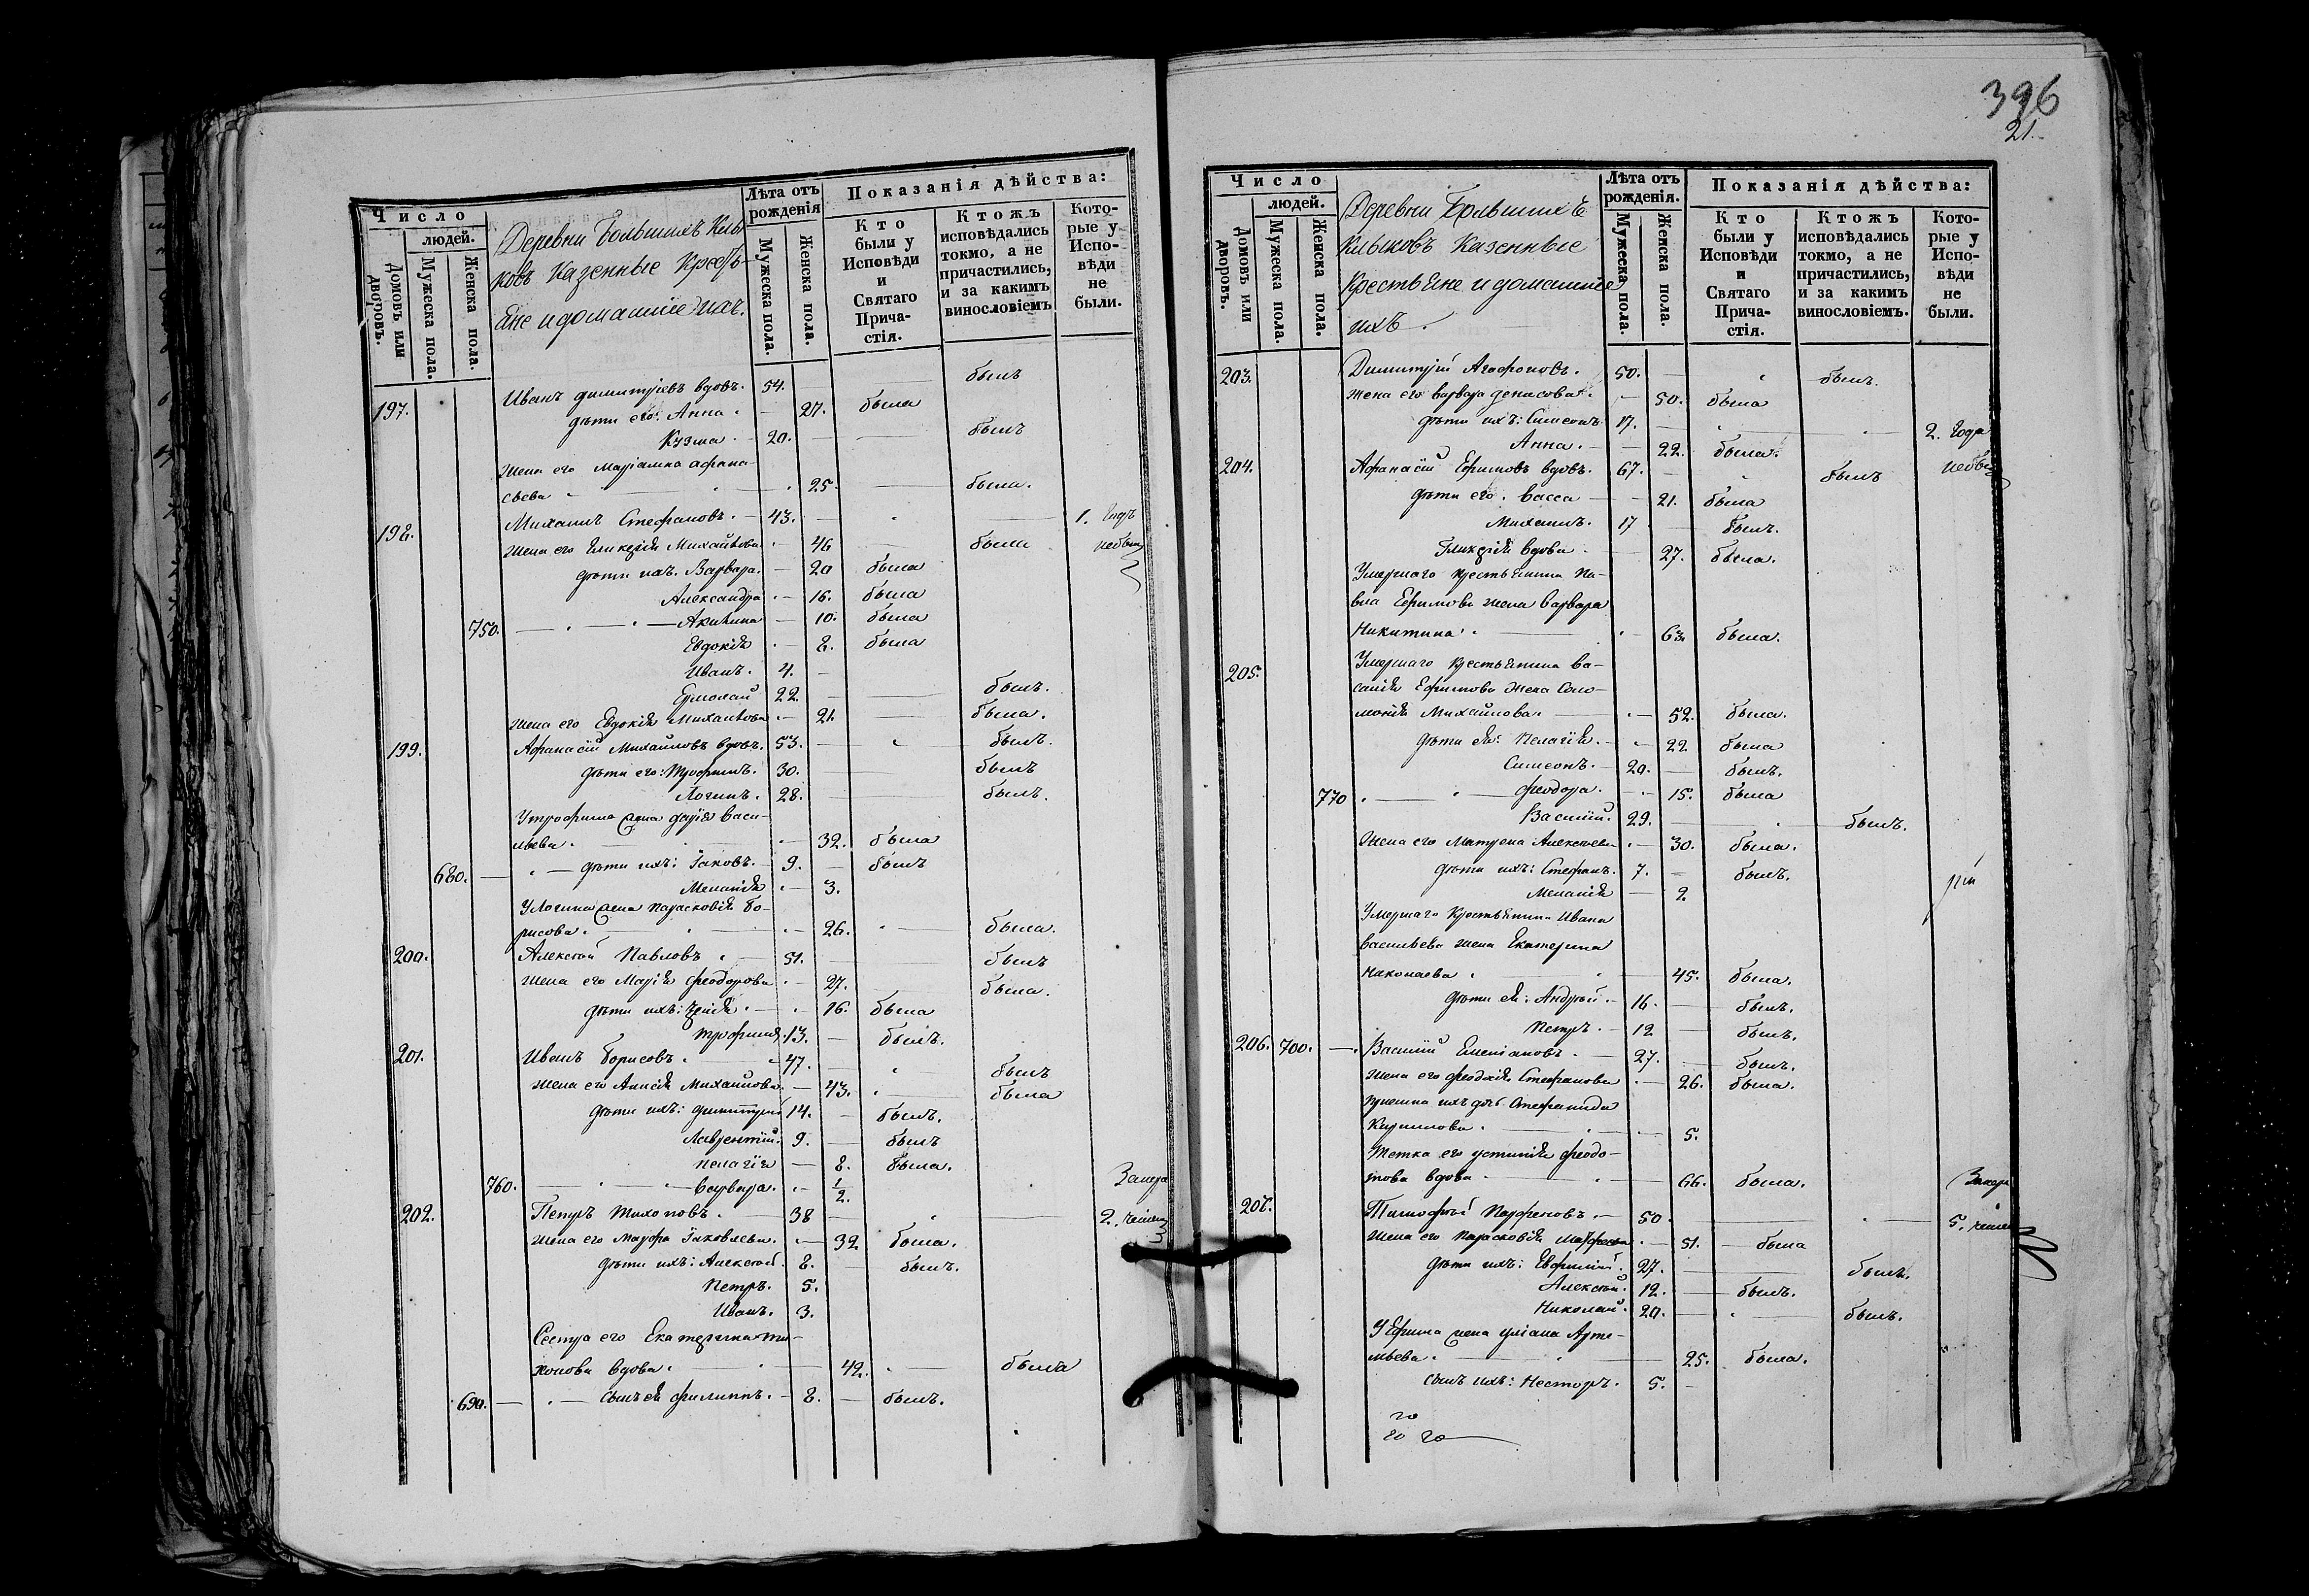 Число
людей.
Домовъ или дворовъ.
Мужеска пола.
Женска пола.
Деревни Большихъ Клы-
ковъ Казенные Кресть-
яне и домашніе ихъ.
Лѣта отъ рожденія
Мужеска пола.
Женска пола.
Показанія дѣйства:
Кто были у Исповѣди и Святаго Прича-стія.
Ктожъ исповѣдались токмо, а не причастились, и за какимъ винословіемъ
Кото-рые у Испо-вѣди не были.
197. Иванъ Димитріевъ вдовъ. 54. былъ
дѣти его: Анна. 27. была
Кузма. 20. былъ
Жена его Маріамна Афана-
сьева 25. была.
198. Михаилъ Стефановъ. 43. 1. годъ
Жена его Гликерія Михайлова 46 была небылъ
дѣти ихъ: Варвара. 20 была
Александра 16. была
750. Акилина 10. была
Евдокія 8. была
Иванъ. 4.
Ермолай 22. былъ.
Жена его Евдокія Михайлова 21. была.
199. Афанасій Михайловъ вдовъ. 53. былъ.
дѣти его: Трофимъ. 30. былъ
Логинъ. 28. былъ.
У Трофима жена Дарія Васи-
льева. 32. была
680. дѣти ихъ: Іаковъ. 9. былъ
Меланія 3.
У Логина жена Парасковія Бо-
рисова. 26. была.
200. Алексѣй Павловъ 51. былъ
Жена его Марія Феодорова 27. была.
дѣти ихъ: 16. была
Трофимъ 13. былъ.
201. Иванъ Борисовъ. 47. былъ
Жена его Анисія Михайлова. 43. была
дѣти ихъ: Димитрій 14. былъ.
Лаврентій. 9. былъ
Пелагія 8. была.
760. Варвара. 1/2.
202. Петръ Тихоновъ. 38 Занера
2. чѣніемъ
Жена его Марфа Іаковлева. 32 была.
дѣти ихъ: Алексѣй. 8. былъ.
Петръ. 5.
Иванъ. 3.
Сестра его Екатерина Ти-
хонова вдова. 42. была
690. сынъ ея Филиппъ. 8. былъ.
396
21.
Число
людей.
Домовъ или дворовъ.
Мужеска пола.
Женска пола.
Деревни Большихъ
Клыковъ Казенные
Крестьяне и домашніе
ихъ.
Лѣта отъ рожденія.
Мужеска пола.
Женска пола.
Показанія дѣйства:
Кто были у Исповѣди и Святаго Прича-стія.
Ктожъ исповѣдались токмо, а не причастились, и за какимъ винословіемъ.
Кото-рые у Испо-вѣди не были.
203. Димитрій Агафоновъ. 50. былъ.
Жена его Варвара Денисова. 50. была
дѣти ихъ: Симеонъ 17. 2. года
Анна. 22. была.
204. Афанасій Ефимовъ вдовъ. 67. былъ небылъ
дѣти его: Васса 21. была
Михаилъ. 17 былъ.
Гликерія вдова 27. была.
Умершаго крестьянина Па-
вла Ефимова жена Варвара
Никитина. 63 была.
205. Умершаго крестьянина Ва-
силія Ефимова жена Соло-
монія Михайлова. 52. была.
дѣти ея: Пелагія. 22 была
Симеонъ. 20. былъ.
770 Феодора. 15. была
Василій. 29. былъ.
Жена его Матрена Алексѣева 30. была.
дѣти ихъ: Стефанъ. 7. былъ.
Меланія 2
Умершаго крестьянина Ивана
Васильева жена Екатерина
Николаева 45. была.
дѣти ея: Андрей. 16. былъ.
Петръ. 12 былъ.
206. 700. Василій Емеліановъ. 27. былъ.
Жена его Феодосія Стефанова 26. была.
Стефанида
Кирилова. 5.
Тетка его Устинія Феодо-
това вдова 66. была.
207. Тимофей Парфеновъ. 50. Занера
5. чѣніемъ
Жена его Парасковія 51. была
дѣти ихъ: Евфимій. 27. былъ.
Алексѣй. 12. былъ.
Николай. 20. былъ.
У Ефима жена Уліана Арте-
мьева. 25. была.
сынъ ихъ: Несторъ. 5.